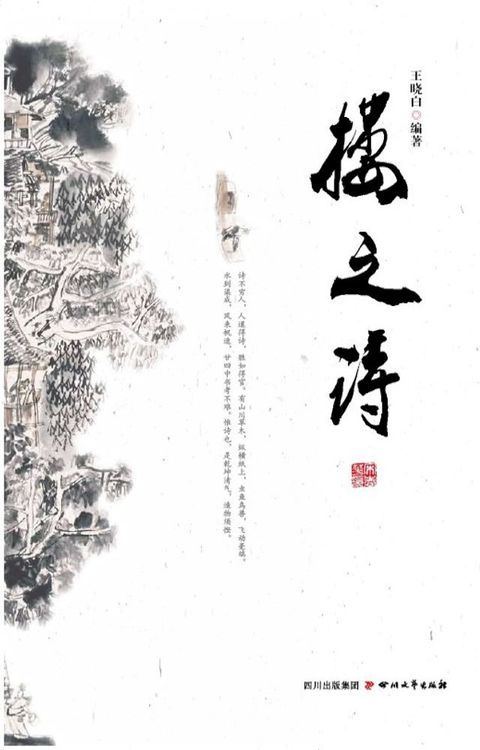 王晓白 编著
楼之诗
诗不穷人，人道得诗，胜如得官。有山川草木，纵横纸上，虫鱼鸟兽，飞动毫端。
水到渠成，风来帆速，廿四中书考不难。惟诗也，是乾坤清气，造物须悭。
四川出版集团 四川文艺出版社